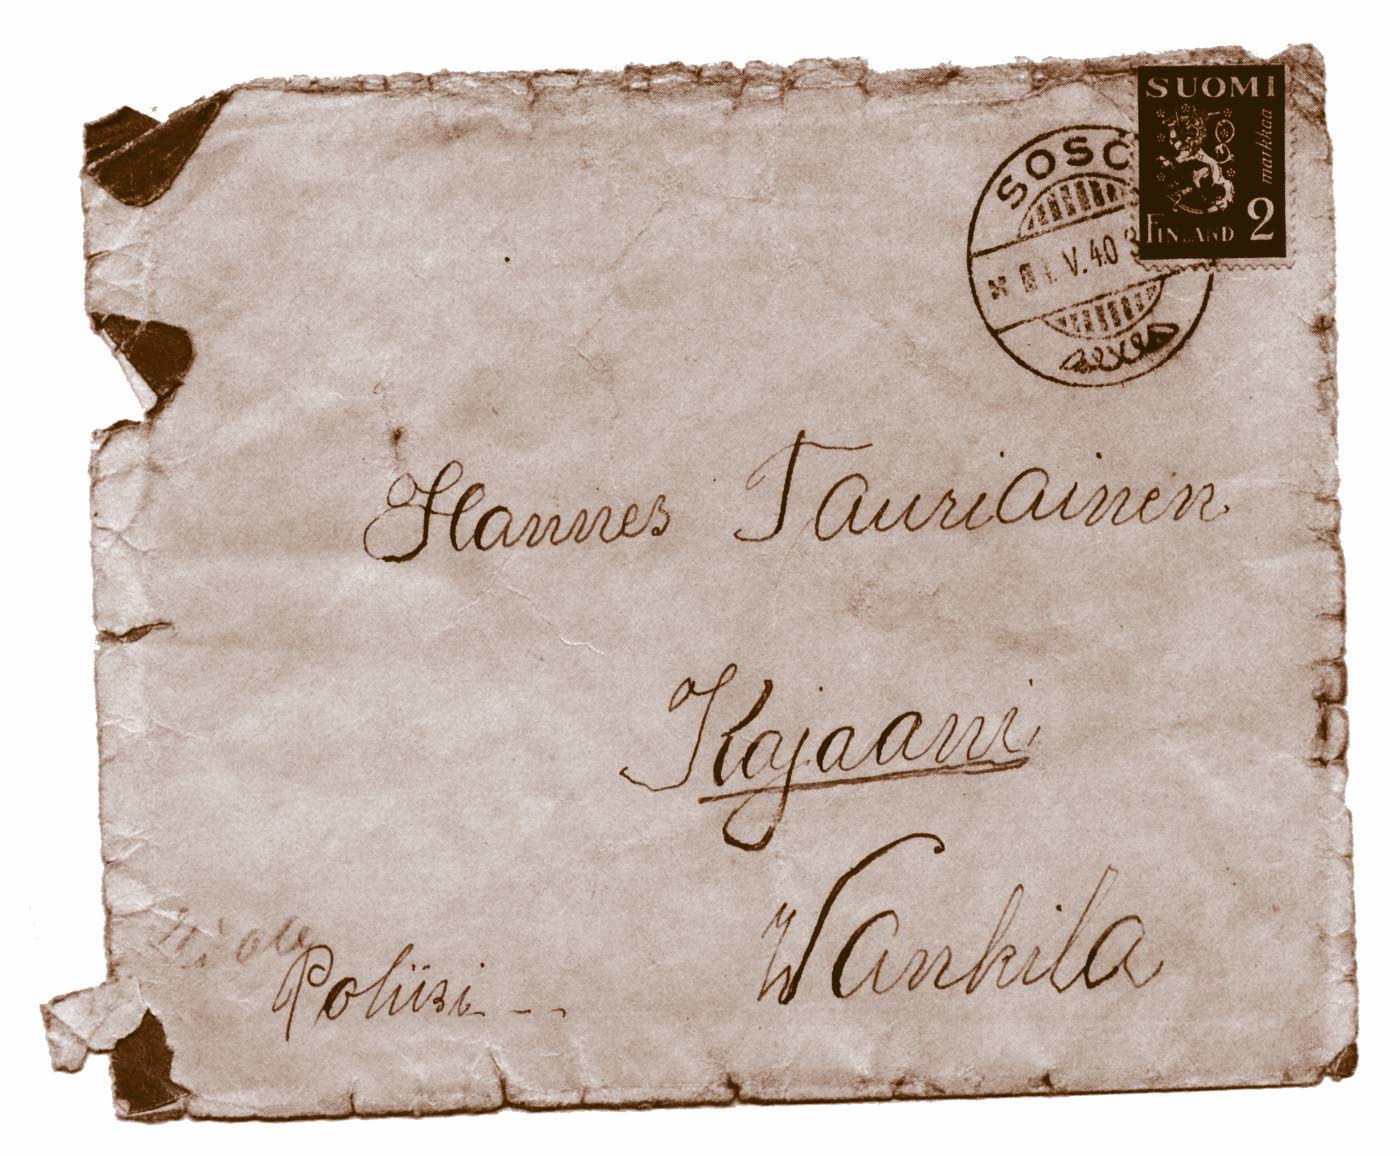 SUOMI
markkaa
FINLAND 2
V.40
Hannes Tauriainen
Kajaani
Wankila
Poliisi - -